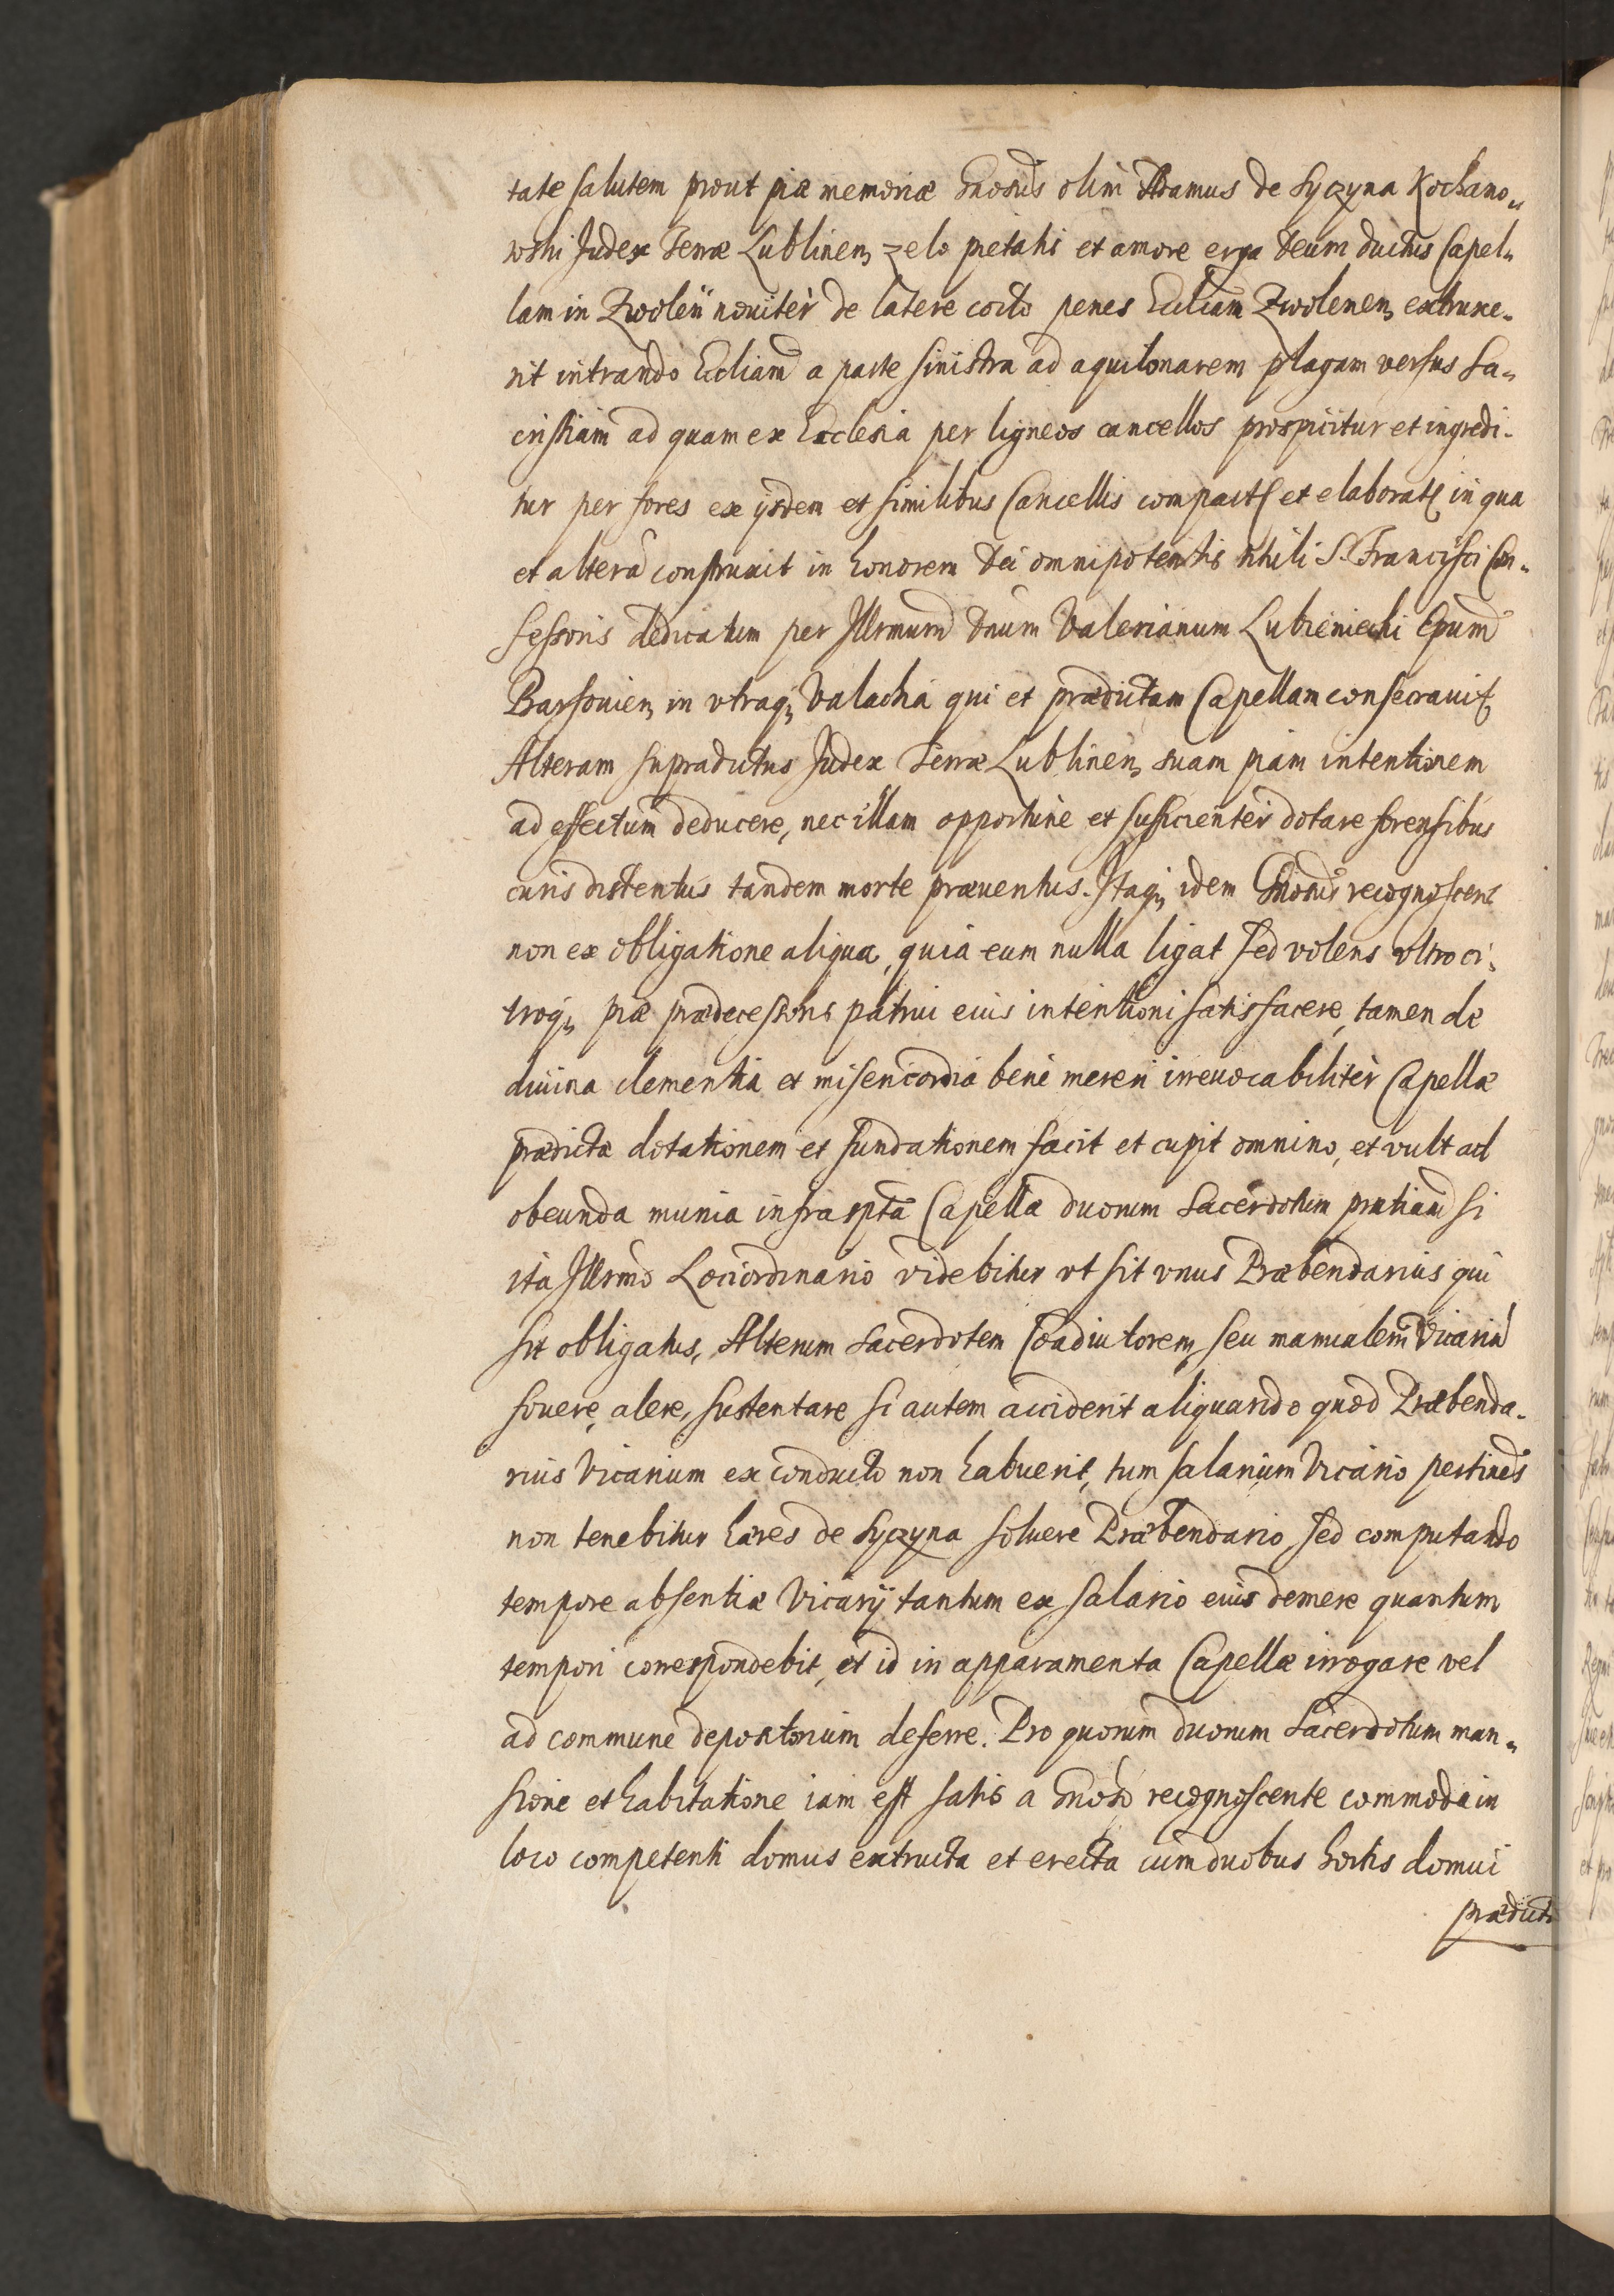 tate salutem prout piæ memoriæ Gnosus olim Adamus de Syczyna Kochano„
wski Judex Terræ Lublinen, zelo pietatis et amore erga Deum ductus Capel„
lam in Zwoleń nouitèr de latere cocto penes Eccliam Zwolenen, extruxe„
rit intrando Eccliam a parte sinistra ad aquilonarem plagam versus Sa„
cristiam ad quam ex Ecclesia per ligneos cancellos prospicitur et ingredi„
tur per fores ex ijsdem et similibus Cancellis compact et elaborat in qua
et alterã construxit in honorem Dei omnipotentis S. Francisci Con„
fessoris dedicatum per Illrmum Dnum Valerianum Lubieniecki Epum
Bacsouien, in vtraq, Valachia qui et prædictam Capellam consecrauit,
Alteram supradictus Judex Terræ Lublinen, suam piam intentionem
ad effectum deducere, nec illam opportune et sufficientèr dotare forensibus
curis distentus tandem morte præuentus. Itaq, idem Gnosus recognoscens
non ex obligatione aliqua, quia eum nulla ligat sed volens vltro ci„
troq, piæ prædecessoris patrui eius intentioni satisfacere, tamen de
diuina clementia et misericordia benè mereri irreuocabilitèr Capellæ
prædictæ dotationem et fundationem facit et cupit omnino, et vult ad
obeunda munia infrasptã Capella duorum Sacerdotum pntiam si
ita Illrmo Lociordinario videbitur vt sit vnus Præbendarius qui
sit obligatus, Alterum Sacerdotem Coadiutorem, seu manualem Vicariũ
fouere, alere, sustentare si autem acciderit aliquando quod Præbenda„
rius Vicarium ex conducto non habuerit, tum salarium Vicario pertinens
non tenebitur hæres de Syczyna soluere Præbendario, sed computando
tempore absentiæ Vicarij tantum ex salario eius demere quantum
tempori correspondebit, et id in apparamenta Capellæ irrogare vel
ad commune depositorium deferre. Pro quorum duorum Sacerdotum man„
sione et habitatione iam est satis a Gnoso recognoscente commoda in
loco competenti domus extructa et erecta cum duobus hortis domui
prædictæ